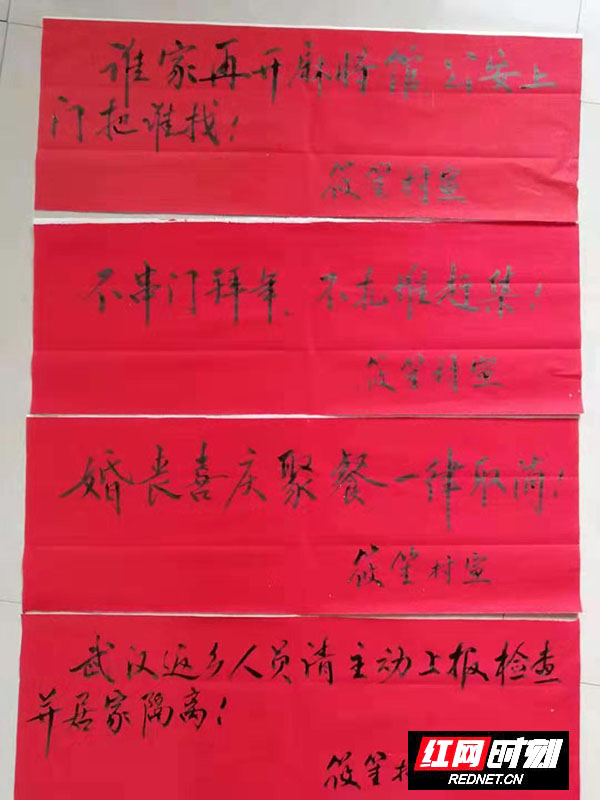 谁家再开麻将馆,公安上
门把谁找!
筱笙村宣
不串门拜年、不扎堆赶集!
筱笙村宣
婚丧喜庆聚餐一律取消!
筱笙村宣
武汉返乡人员请主动上报检查
并居家隔离!
筱笙村
红网时刻
REDNET.CN